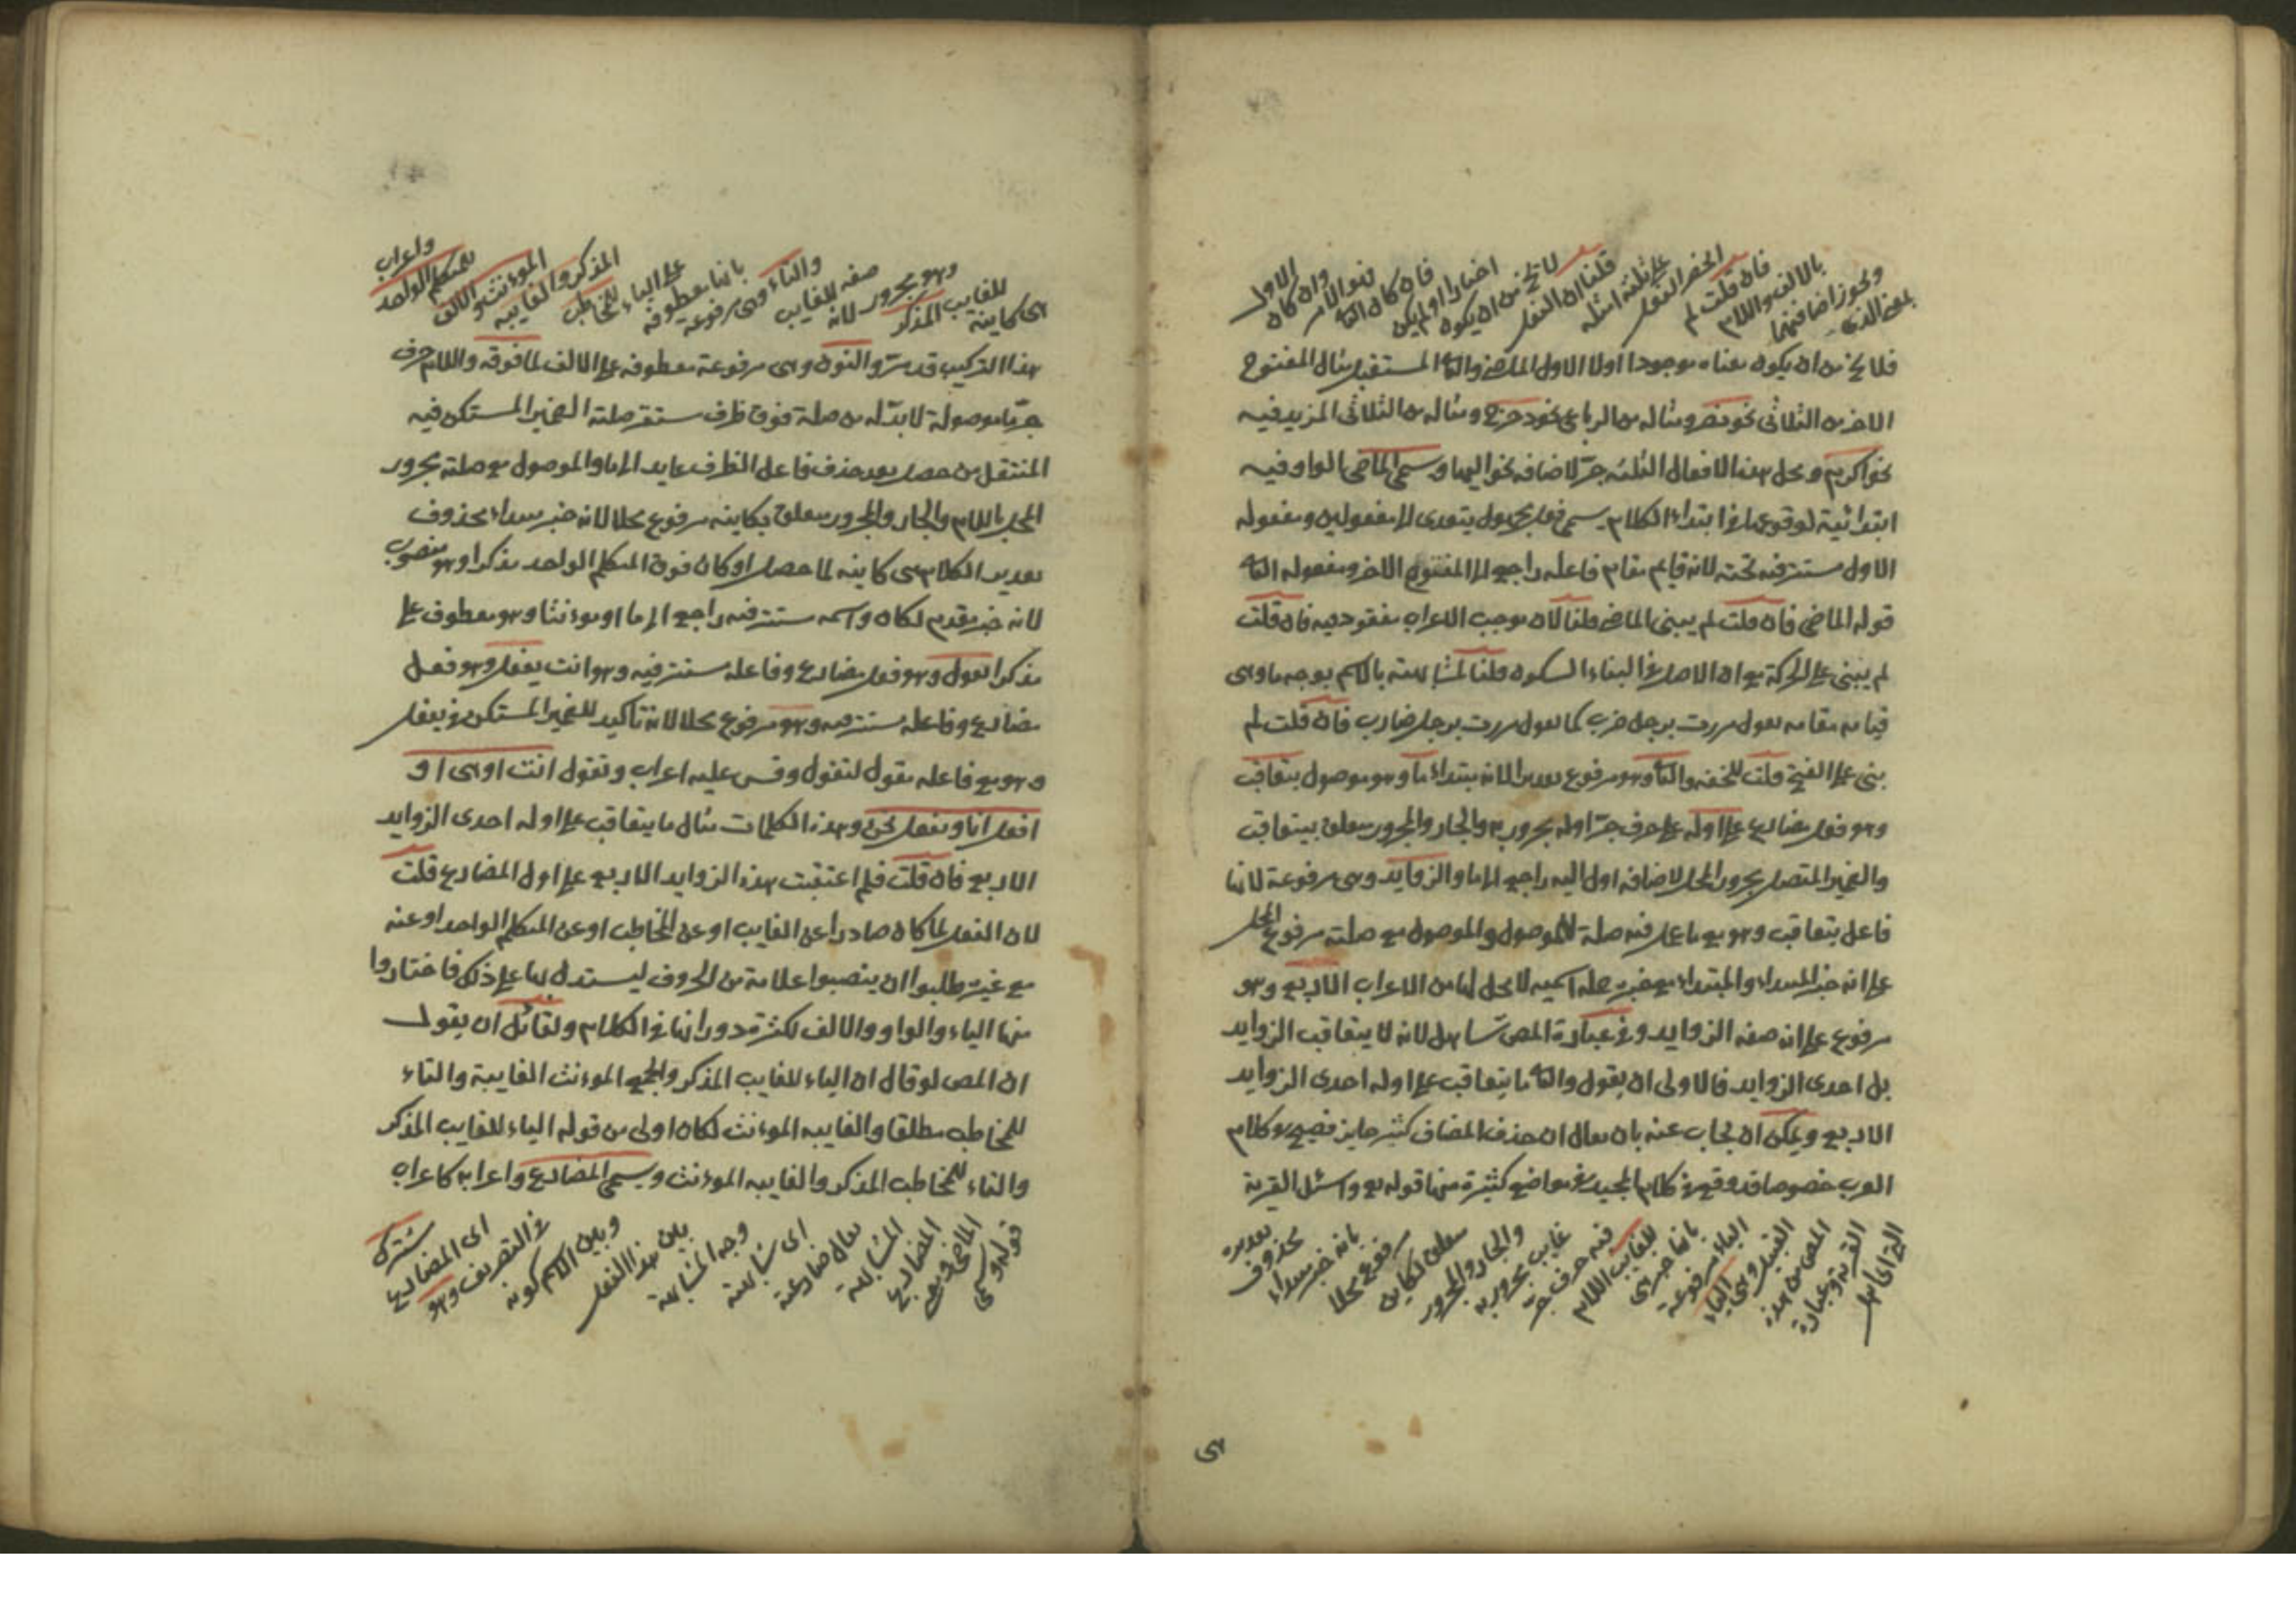 بمعنى الذى
ويجوز اضافتهما
بالالف واللام
فان قلت لم
انحصر الفعل
على ثلثة امثلة
قلنا ان الفعل
لا يخ من ان يكون
اخبارا او لم يكن
فان كان الثا
فهو الامر
وان كان
الاول
فلا يخ من ان يكون معناه موجودا اولا الاول الماضى والثا المستقبل مثال المفتوح
الاخر من الثلاثى نحو نصر ومثاله من الرباعى نحو دحرج ومثاله من الثلاثى المزيد فيه
نحو اكرم ومحل هذه الافعال الثلثه جر لاضافه نحو اليها وسمى الماضى الواو فيه
ابتدائية لوقوعها فى ابتداء الكلام سمى فعل مجهول يتعدى الا مفعولين ومفعوله
الاول مستتر فيه تحته لانه قايم مقام فاعله راجع الا المفتوح الاخر ومفعوله الثا
قوله الماضى فان قلت لم يبنى الماضى قلنا لان موجب الاعراب مفقود فيه فان قلت
لم يبنى على الحركة مع ان الاصل فى البناء السكون قلنا لمشابهته بالاسم بوجه ما وهى
قيامه مقامه تقول مررت برجل ضرب كما تقول مررت برجل ضارب فان قلت لم
بنى على الفتح قلت للخفه والثا وهو مرفوع تقديرا لانه مبتداء ما وهو موصول يتعاقب
وهو فعل مضارع على اوله على حرف جر اوله مجرور به والجار والمجرور متعلق بيتعاقب
والضمير المتصل مجرور المحل لاضافه اول اليه راجع الا ما والزوايد وهى مرفوعة لانها
فاعل يتعاقب وهو مع ما عمل فيه صلة للموصول والموصول مع صلته مرفوع المحل
على انه خبر المبتداء والمبتداء مع خبره جملة اسميه لا محل لها من الاعراب الاربع وهو
مرفوع على انه صفه الزوايد وفى عبارة المص تساهل لانه لا يتعاقب الزوايد
بل احدى الزوايد فالاولى ان يقول والثا ما يتعاقب على اوله احدى الزوايد
الاربع ويمكن ان يجاب عنه بان يقال ان حذف المضاف كثير جايز فصيح فى كلام
العرب خصوصا قد وقع فى كلام المجيد فى مواضع كثيرة منها قوله تع واسئل القرية
التى اى اهل
القرية وعبارة
المص من هذه
القبيل وهى الياء
الياء مرفوعة
بانها خبر هى
للغايب اللام
فيه حرف جر
غايب مجرور به
والجار والمجرور
متعلق بكاين
مرفوع محلا
بانه خبر مبتداء
محذوف
تقديره
هى
هى كاينة
للغايب المذكر
وهو مجرور لانه
صفه للغايب
والتاء وهى مرفوعة
بانها معطوفه
على الياء للمخاطب
المذكر والغايبه
المؤنث والالف
للمتكلم الواحد
واعراب
هذا التركيب قد مر والنون وهى مرفوعة معطوفه على الالف لما فوقه واللام حرف
جر ما موصولة لابد له من صلة فوق ظرف مستقر صلته الضمير المستكن فيه
المنتقل من حصل بعد حذف فاعل الظرف عايد الا ما والموصول مع صلته مجرور
المحل باللام والجار والمجرور متعلق بكاينه مرفوع محلا لانه خبر مبتداء محذوف
تقدير الكلام هى كاينه لما حصل او كان فوق المتكلم الواحد مذكرا وهو منصوب
لانه خبر مقدم لكان واسمه مستتر فيه راجع الا ما او مؤنثا وهو معطوف على
مذكرا تقول وهو فعل مضارع وفاعله مستتر فيه وهو انت يفعل وهو فعل
مضارع وفاعله مستتر فيه وهو مرفوع محلا لانه تاكيد للضمير المستكن فى يفعل
وهو مع فاعله مقول لتقول وقس عليه اعراب وتقول انت او هى او
افعل انا ونفعل نحن وهذه الكلمات مثال ما يتعاقب على اوله احدى الزوايد
الاربع فان قلت فلم اعتقبت هذه الزوايد الاربع على اول المضارع قلت
لان الفعل لما كان صادرا عن الغايب او عن المخاطب او عن المتكلم الواحد او عنه
مع غيره طلبوا ان ينصبوا علامة من الحروف ليستدل لها على ذلك فاختاروا
منها الياء والواو والالف لكثرة دورانها فى الكلام ولقائل ان يقول
ان المص لو قال ان الياء للغايب المذكر والجمع المؤنث الغايبة والتاء
للمخاطب مطلقا والغايبه المؤنث لكان اولى من قوله الياء للغايب المذكر
والتاء للمخاطب المذكر والغايبه المؤنث ويسمى المضارع واعرابه كاعراب
قوله وسمى
الماضى ومعنى
المضارع
المشابهة
يقال ضارعة
اى شابهته
وجه المشابهة
بين هذا الفعل
وبين الاسم كونه
فى التصريف وهو
اى المضارع
مشترك